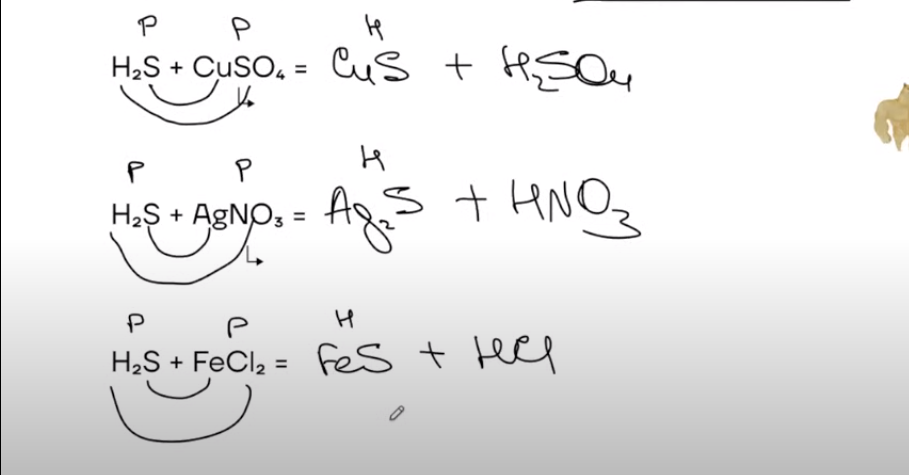 Р Р Н
H₂S + CuSO₄ = CuS + H₂SO₄
Р Р Н
H₂S + AgNO₃ = Ag₂S + HNO₃
Р Р Н
H₂S + FeCl₂ = FeS + HCl